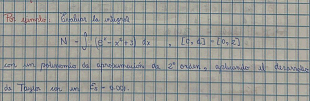 Por ejemplo: Evaluar la integral
N = ∫ (eˣ - x² + 3) dx , [0, 2]
con un polinomio de aproximación de 2° orden, aplicando el desarrollo
de Taylor con un